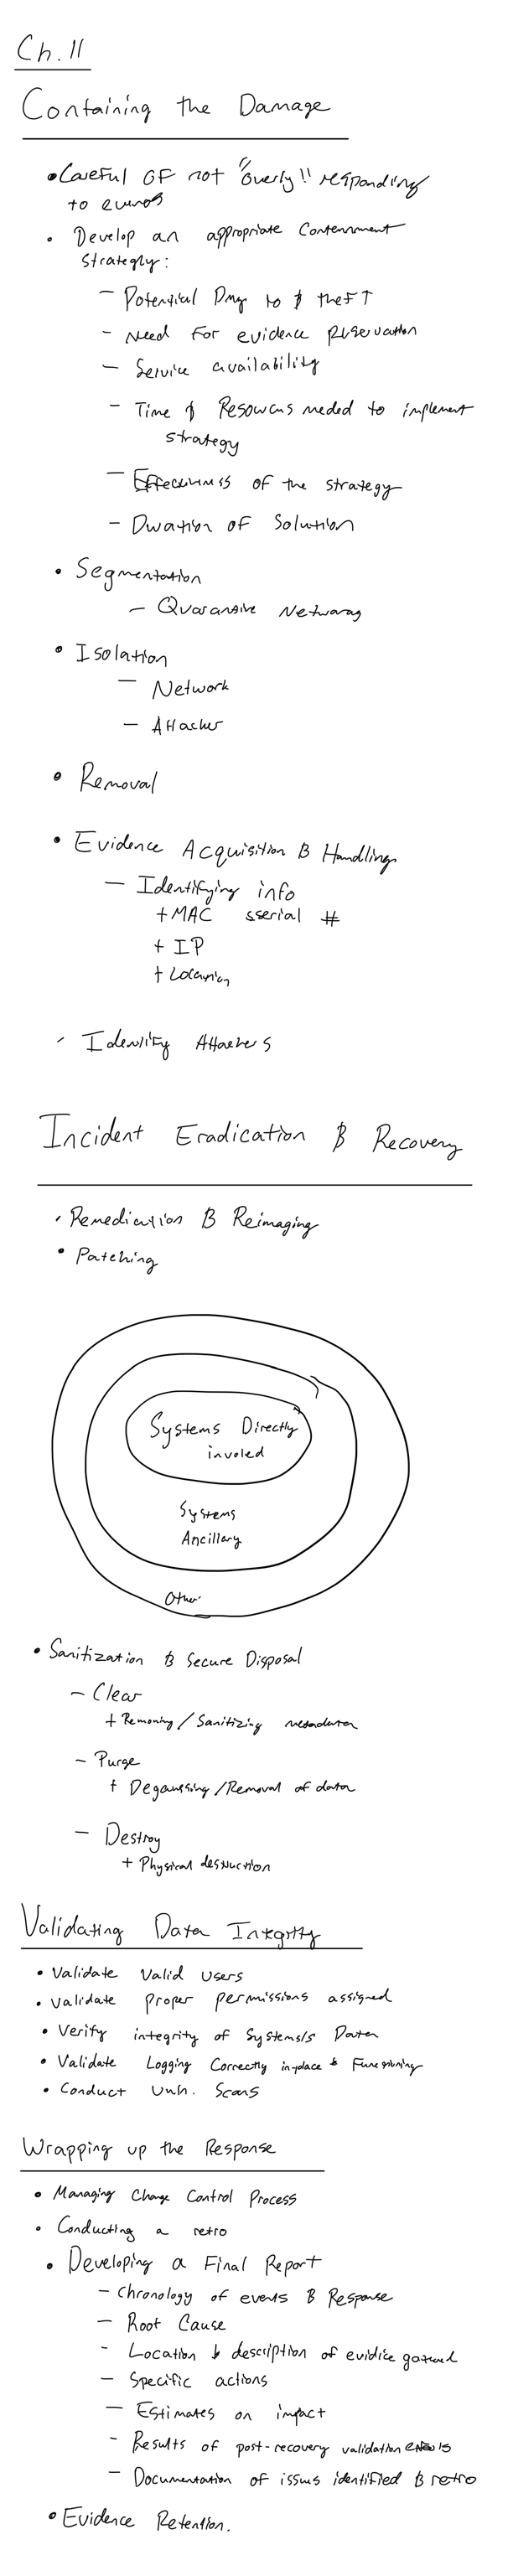 Ch. 11
Containing the Damage
• Careful OF not "overly" responding
to events
• Develop an appropriate Containment
Strategly:
- Potential Dmg to & theFT
- Need For evidence preservation
- Service availability
- Time & Resources needed to implement
strategy
- Effectiveness of the strategy
- Duration of Solution
• Segmentation
- Quarantine Networks
• Isolation
- Network
- Attacker
• Removal
• Evidence Acquisition & Handling
- Identifying info
+ MAC sserial #
+ IP
+ Location
• Identify Attackers
Incident Eradication & Recovery
• Remediation & Reimaging
• Patching
Systems Directly
involed
Systems
Ancillary
Other
• Sanitization & Secure Disposal
- Clear
+ Removing / Sanitizing metadata
- Purge
+ Degaussing / Removal of data
- Destroy
+ Physical destruction
Validating Data Integrity
• Validate Valid Users
• Validate proper permissions assigned
• Verify integrity of Systems/s Data
• Validate Logging Correctly in-place & Functioning
• Conduct Vuln. Scans
Wrapping up the Response
• Managing Change Control Process
• Conducting a retro
• Developing a Final Report
- Chronology of events & Response
- Root Cause
- Location & description of evidice
- Specific actions
- Estimates on impact
- Results of post-recovery validation
- Documentation of issues identified & retro
• Evidence Retention.